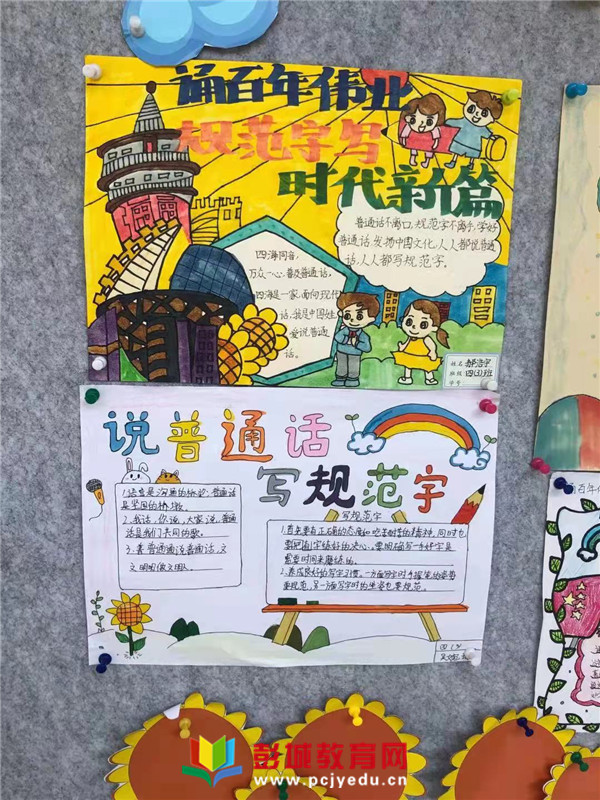 诵百年伟业
规范字写
时代新篇
普通话不离口,规范字不离手,学好
普通话,发扬中国文化,人人都说普通
话,人人都写规范字。
四海同音,
万众一心,普及普通话。
四海是一家,面向现代
话,我是中国娃
爱说普通
话。
姓名 郝浩宇
班级 四(3)班
学号
说普通话
写规范字
写规范字
1.语言是沟通的桥梁,普通话
是坚固的桥墩。
2.我话,你说,大家说,普通
话是我们共同的歌。
3.普通通说普通话,文
文明明做文明人。
1.首先要有正确的态度和吃苦耐劳的精神,同时也
要把字练好的决心,要明确写一手好字是
需要时间来磨练的。
2.养成良好的写字习惯。一方面写字时手握笔的姿势
要规范,另一方面写字时的坐姿也要规范。
彭城教育网
www.pcjyedu.cn